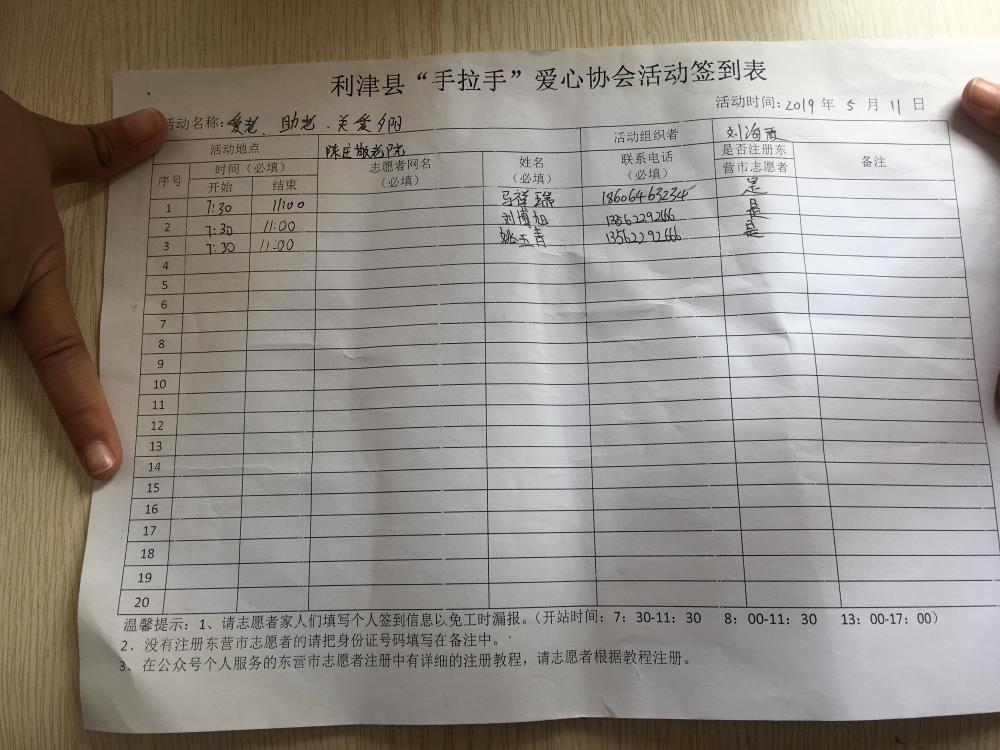 利津县“手拉手”爱心协会活动签到表
活动名称：爱老、助老、关爱夕阳 活动时间：2019 年 5 月 11 日
活动地点 陈庄敬老院 活动组织者 刘海霞
序号 时间（必填） 志愿者网名（必填） 姓名（必填） 联系电话（必填） 是否注册东营市志愿者 备注
开始 结束
1 7:30 11:00 马祥瑞 18606463234 是
2 7:30 11:00 刘博旭 13562292666 是
3 7:30 11:00 姚玉青 13562292666 是
4
5
6
7
8
9
10
11
12
13
14
15
16
17
18
19
20
温馨提示：1、请志愿者家人们填写个人签到信息以免工时漏报。（开站时间：7：30-11：30 8：00-11：30 13：00-17：00）
2、没有注册东营市志愿者的请把身份证号码填写在备注中。
3、在公众号个人服务的东营市志愿者注册中有详细的注册教程，请志愿者根据教程注册。